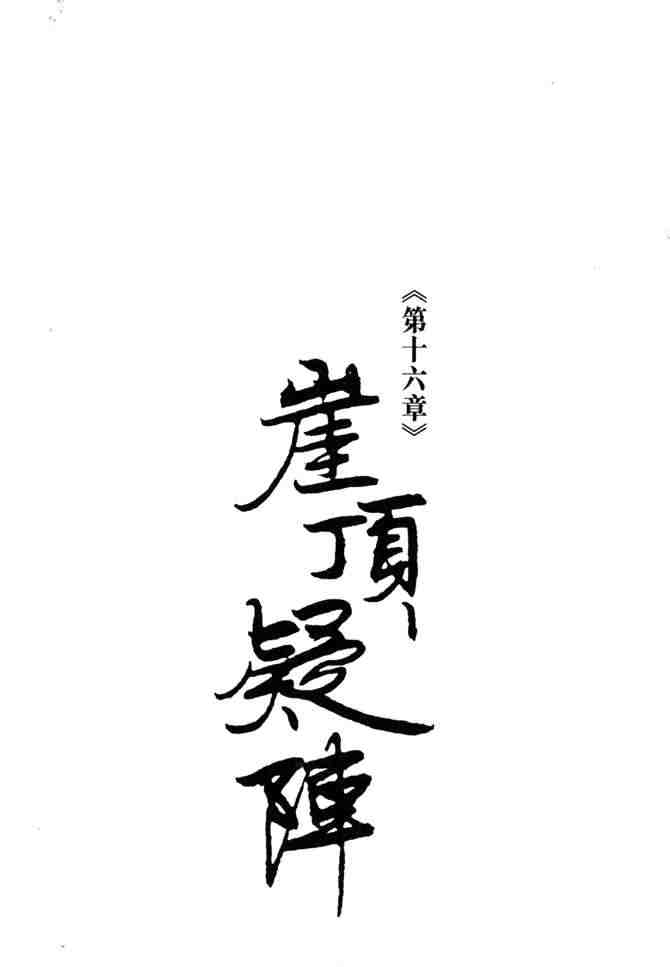 《第十六章》
崖頂疑陣